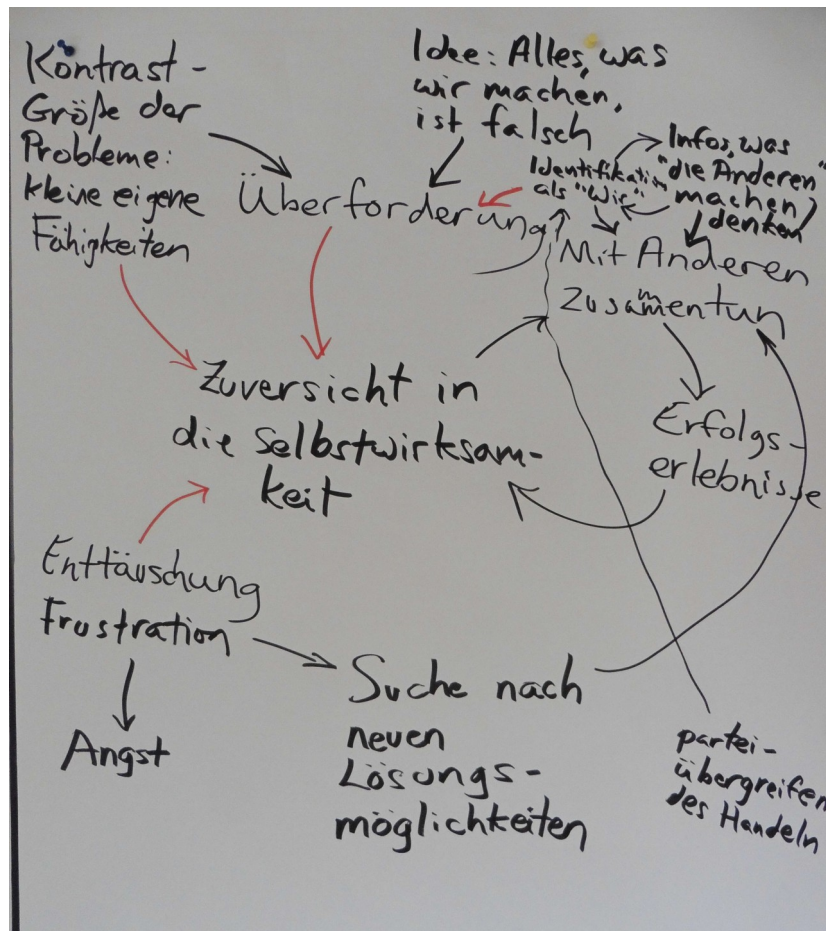 Kontrast-
Größe der
Probleme:
kleine eigene
Fähigkeiten
Idee: Alles, was
wir machen,
ist falsch
Infos, was
"die Anderen"
machen/
denken
Identifikation
als "Wir"
Überforderung
Mit Anderen
Zusammentun
Zuversicht in
die Selbstwirksam-
keit
Erfolgs-
erlebnisse
Enttäuschung
Frustration
Angst
Suche nach
neuen
Lösungs-
möglichkeiten
partei-
übergreifen
des Handeln